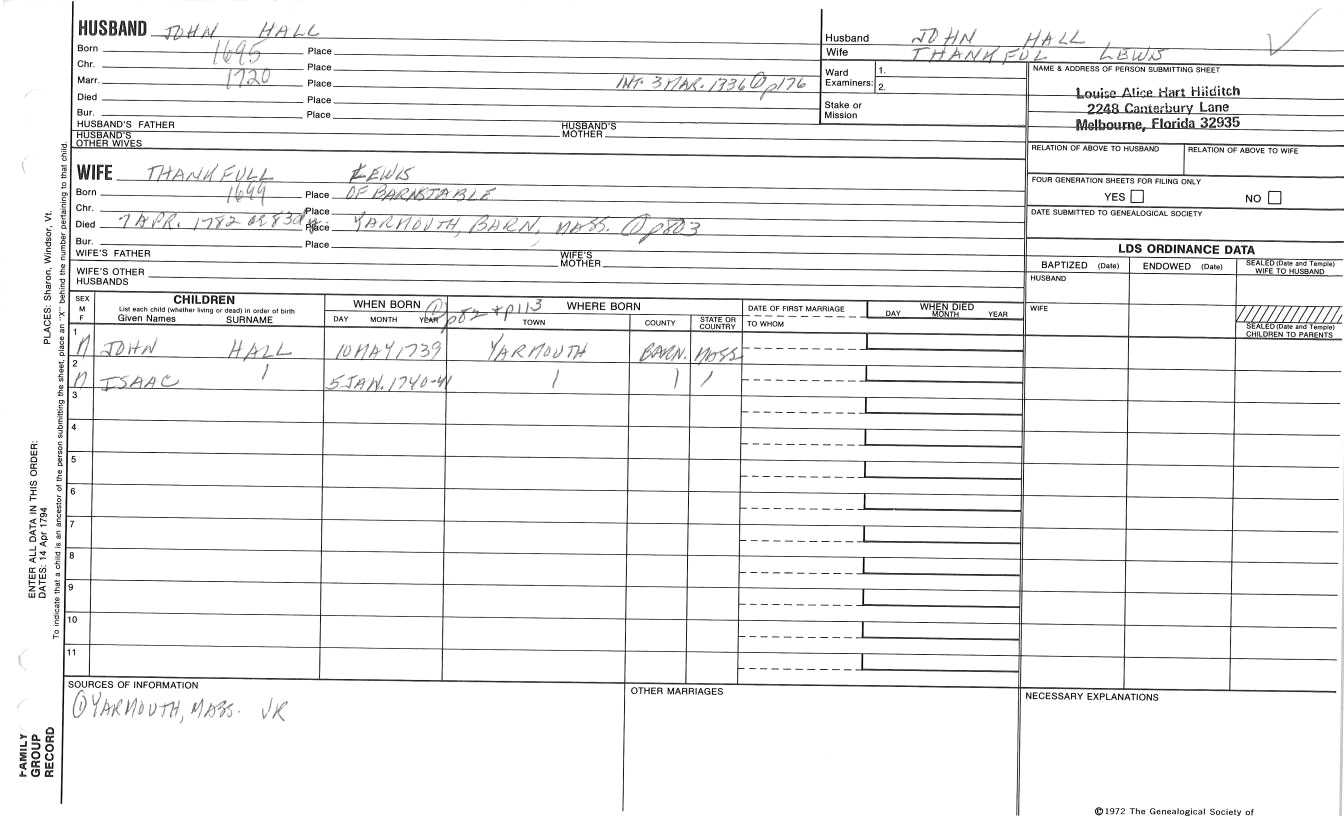 HUSBAND JOHN HALL
Born 1695 Place
Chr. Place
Marr. 1720 Place INT. 3 MAR. 1736 ① p176
Died Place
Bur. Place
HUSBAND'S FATHER HUSBAND'S MOTHER
HUSBAND'S OTHER WIVES
Husband JOHN HALL
Wife THANKFUL LEWIS
Ward Examiners: 1.
2.
Stake or Mission
NAME & ADDRESS OF PERSON SUBMITTING SHEET
Louise Alice Hart Hilditch
2248 Canterbury Lane
Melbourne, Florida 32935
RELATION OF ABOVE TO HUSBAND RELATION OF ABOVE TO WIFE
FOUR GENERATION SHEETS FOR FILING ONLY
YES NO
DATE SUBMITTED TO GENEALOGICAL SOCIETY
WIFE THANKFULL LEWIS
Born 1699 Place OF BARNSTABLE
Chr. Place
Died 7 APR. 1782 OR 83 Place YARMOUTH, BARN, MASS. ① p803
Bur. Place
WIFE'S FATHER WIFE'S MOTHER
WIFE'S OTHER HUSBANDS
LDS ORDINANCE DATA
BAPTIZED (Date) ENDOWED (Date) SEALED (Date and Temple) WIFE TO HUSBAND
HUSBAND
WIFE
SEALED (Date and Temple) CHILDREN TO PARENTS
SEX M F
CHILDREN
List each child (whether living or dead) in order of birth
Given Names SURNAME
WHEN BORN ① p82 + p113
DAY MONTH YEAR
WHERE BORN
TOWN COUNTY STATE OR COUNTRY
DATE OF FIRST MARRIAGE
TO WHOM
WHEN DIED
DAY MONTH YEAR
1 M JOHN HALL 10 MAY 1739 YARMOUTH BARN. MASS
2 M ISAAC 5 JAN. 1740-41
3
4
5
6
7
8
9
10
11
SOURCES OF INFORMATION
① YARMOUTH, MASS. VR
OTHER MARRIAGES
NECESSARY EXPLANATIONS
©1972 The Genealogical Society of
PLACES: Sharon, Windsor, Vt.
ENTER ALL DATA IN THIS ORDER:
DATES: 14 Apr 1794
To indicate that a child is an ancestor of the person submitting the sheet, place an "X" behind the number pertaining to that child.
FAMILY
GROUP
RECORD